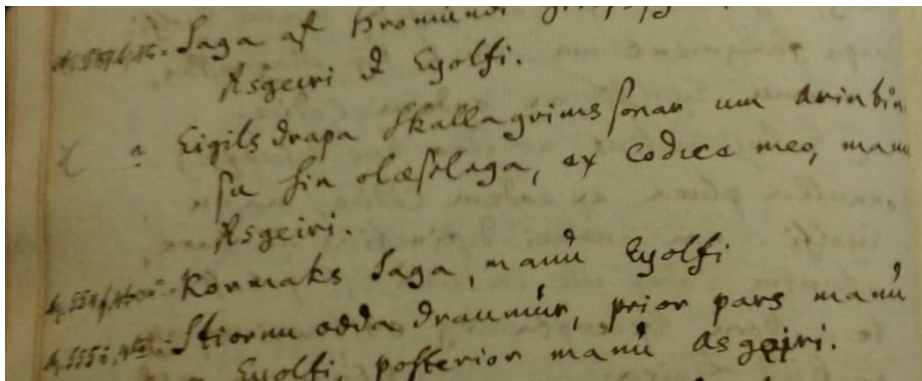 Saga af Hromundi
Asgeiri & Eyolfi.
Eigils drapa Skallagrimssonar um Arinbiǫn
su hin olæsilaga, ex Codice meo, manu
Asgeiri.
Kormaks Saga, manů Eyolfi
Stiornu odda draumůr, prior pars manů
Eyolfi, posterior manů Asgeiri.